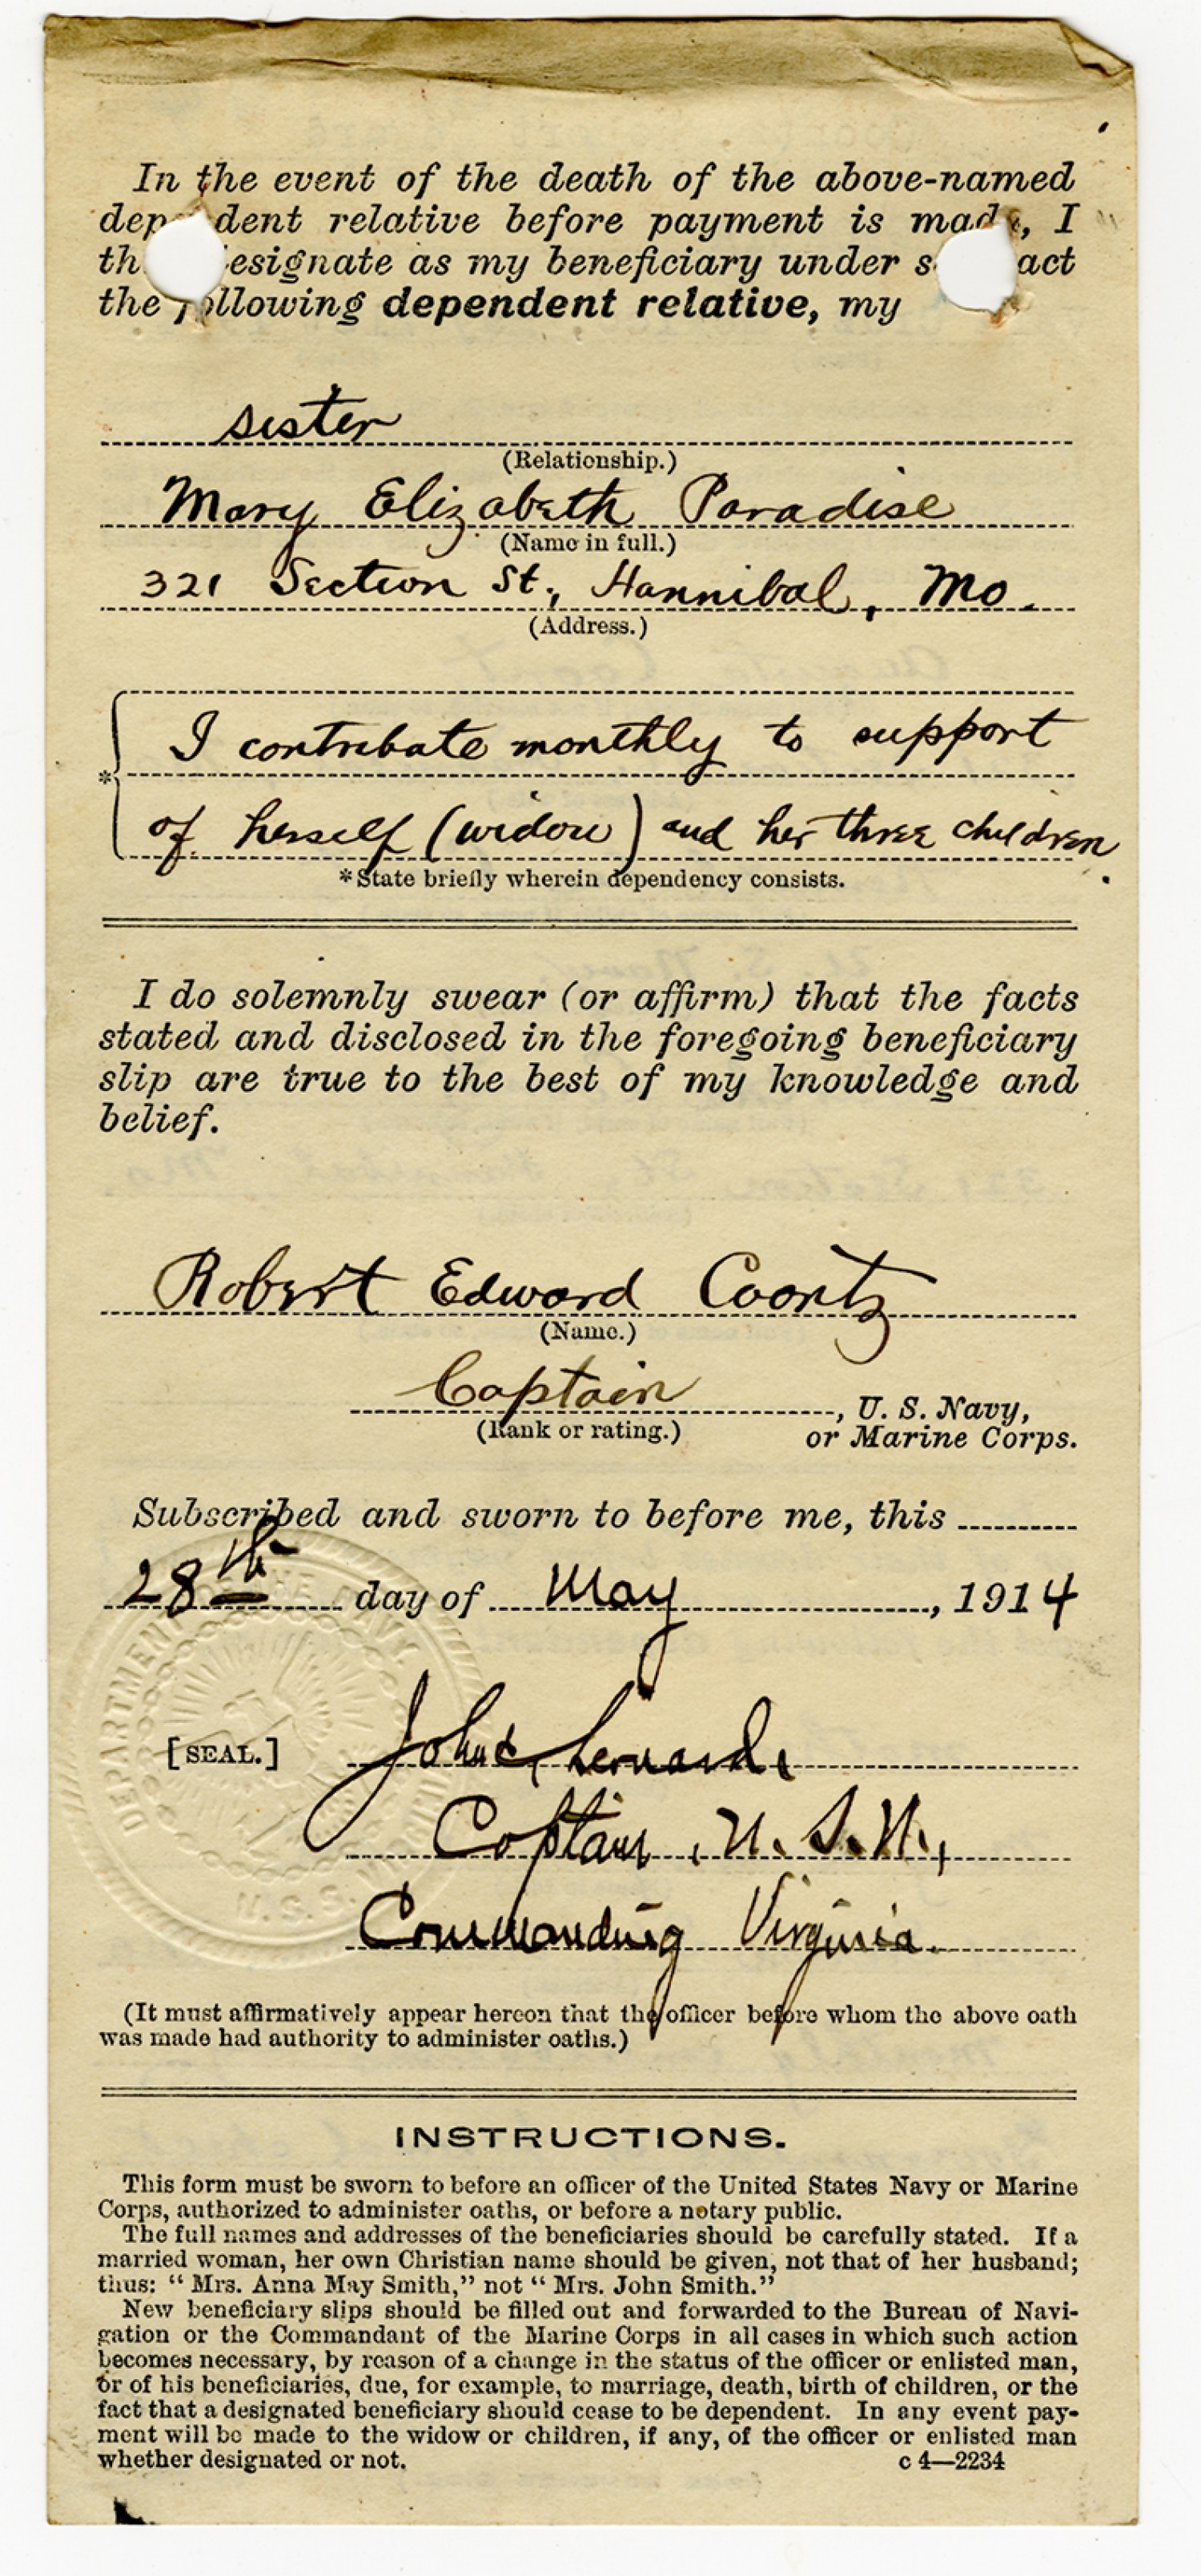 In the event of the death of the above-named
dep dent relative before payment is made, I
th esignate as my beneficiary under s act
the following dependent relative, my
sister
(Relationship.)
Mary Elizabeth Paradise
(Name in full.)
321 Section St., Hannibal, Mo.
(Address.)
I contribute monthly to support
*
of herself (widow) and her three children.
*State briefly wherein dependency consists.
I do solemnly swear (or affirm) that the facts
stated and disclosed in the foregoing beneficiary
slip are true to the best of my knowledge and
belief.
Robert Edward Coontz
(Name.)
Captain, U. S. Navy,
(Rank or rating.) or Marine Corps.
Subscribed and sworn to before me, this
28th day of May, 1914
DEPARTMENT OF THE NAVY
[SEAL.] John C. Leonard,
Captain, U. S. N.,
U.S.S. VIRGINIA
Commanding Virginia.
(It must affirmatively appear hereon that the officer before whom the above oath
was made had authority to administer oaths.)
INSTRUCTIONS.
This form must be sworn to before an officer of the United States Navy or Marine
Corps, authorized to administer oaths, or before a notary public.
The full names and addresses of the beneficiaries should be carefully stated. If a
married woman, her own Christian name should be given, not that of her husband;
thus: “Mrs. Anna May Smith,” not “Mrs. John Smith.”
New beneficiary slips should be filled out and forwarded to the Bureau of Navi-
gation or the Commandant of the Marine Corps in all cases in which such action
becomes necessary, by reason of a change in the status of the officer or enlisted man,
or of his beneficiaries, due, for example, to marriage, death, birth of children, or the
fact that a designated beneficiary should cease to be dependent. In any event pay-
ment will be made to the widow or children, if any, of the officer or enlisted man
whether designated or not. c 4—2234